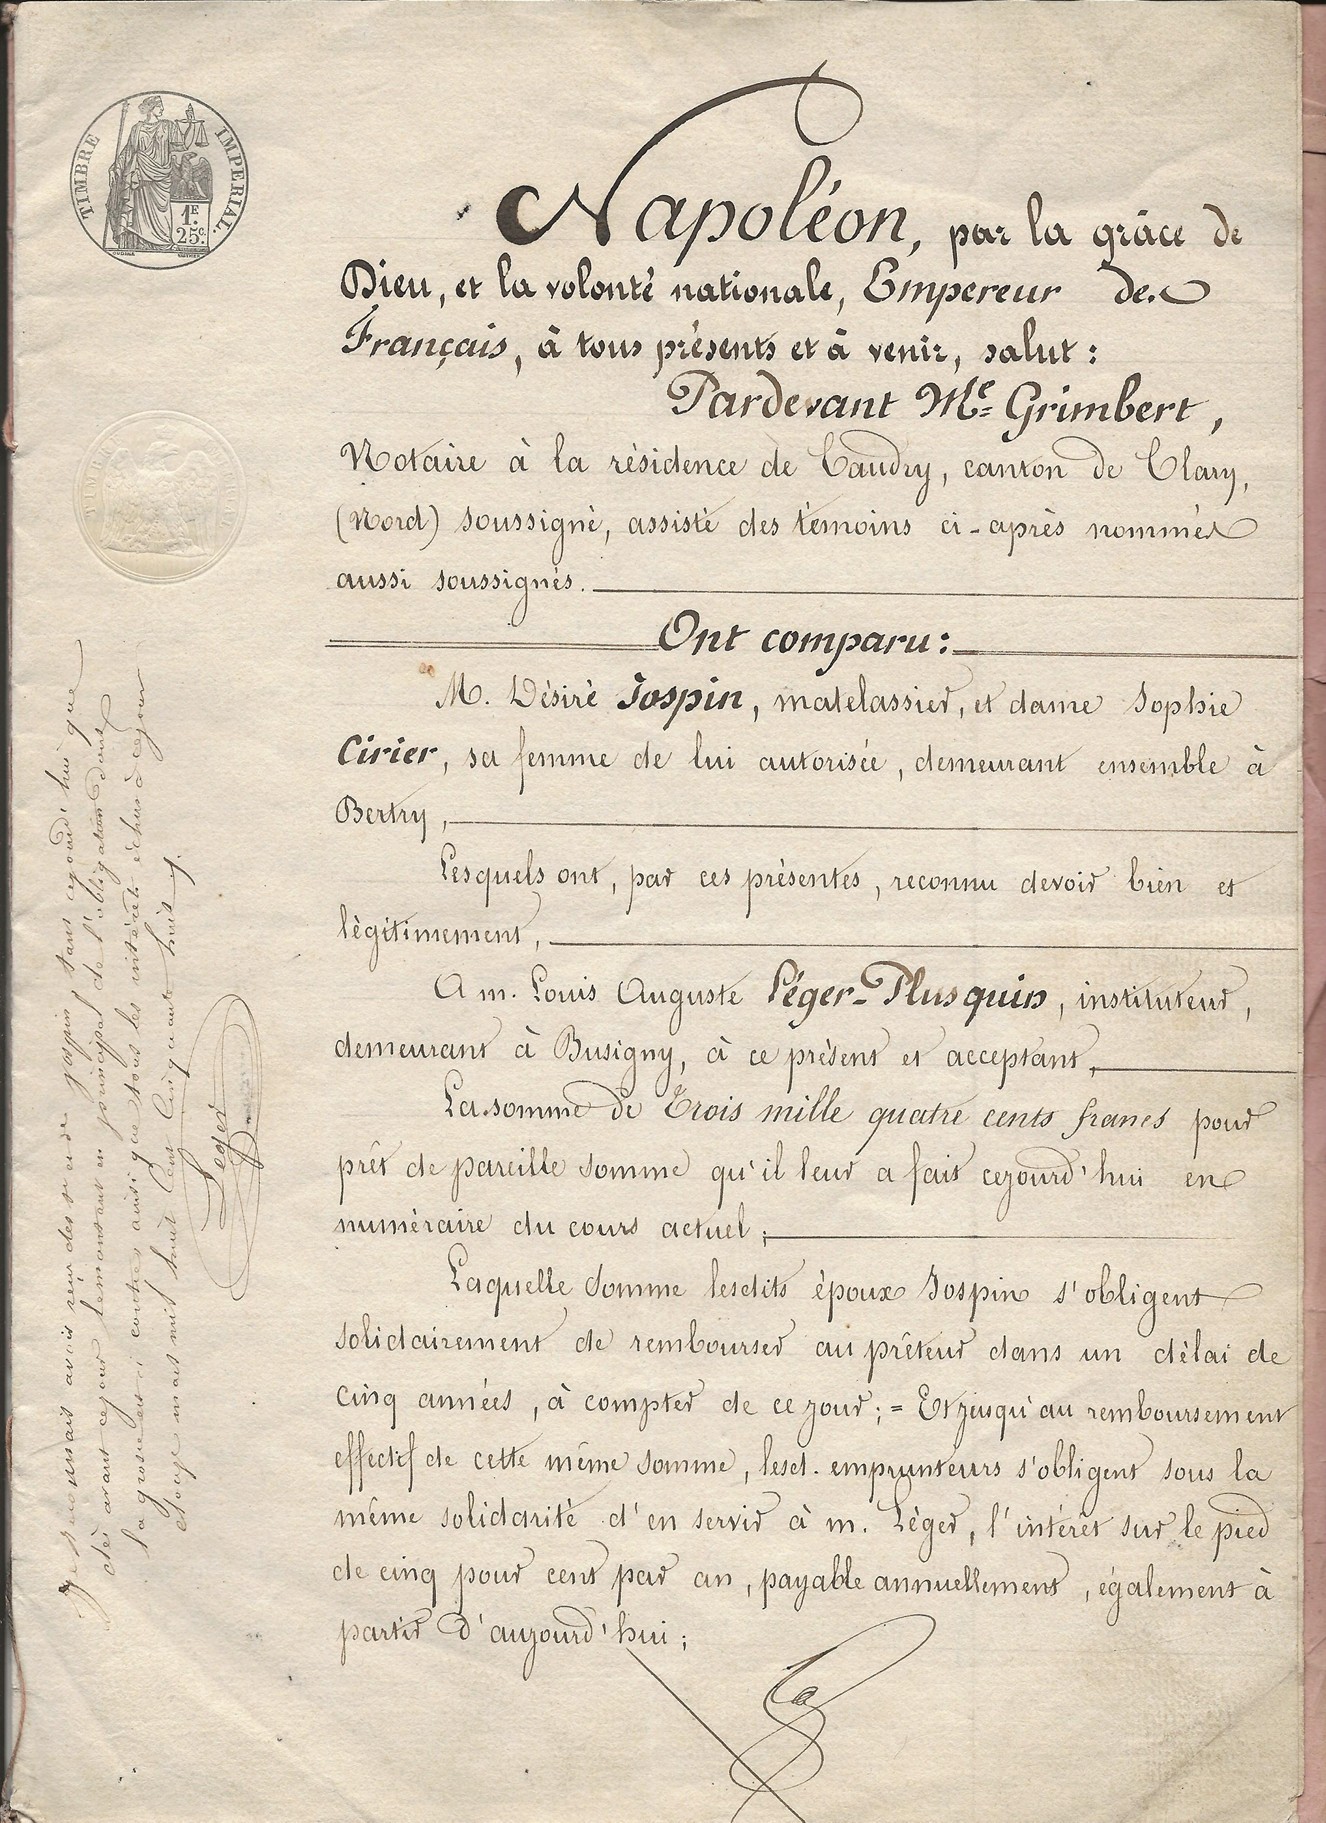 TIMBRE IMPERIAL.
1F.
25c.
Napoléon, par la grâce de
Dieu, et la volonté nationale, Empereur des
Français, à tous présents et à venir, salut :
Pardevant Me Grimbert,
Notaire à la résidence de Caudry, canton de Clary,
(Nord) soussigné, assisté des témoins ci-après nommés
aussi soussignés.
Ont comparu :
M. Désiré Jospin, matelassier, et dame Sophie
Cirier, sa femme de lui autorisée, demeurant ensemble à
Bertry,
Lesquels ont, par ces présentes, reconnu devoir bien et
légitimement,
A m. Louis Auguste Léger-Plusquin, instituteur,
demeurant à Busigny, à ce présent et acceptant,
La somme de Trois mille quatre cents francs pour
prêt de pareille somme qu'il leur a fait cejourd'hui en
numéraire du cours actuel ;
Laquelle somme lesdits époux Jospin s'obligent
solidairement de rembourser au prêteur dans un délai de
cinq années, à compter de ce jour ; = Et jusqu'au remboursement
effectif de cette même somme, lesd. emprunteurs s'obligent sous la
même solidarité d'en servir à m. Léger, l'intérêt sur le pied
de cinq pour cent par an, payable annuellement, également à
partir d'aujourd'hui ;
Je reconnais avoir reçu des Jospin tans aujourd'hui que
dès avant ce jour le montant en principal de l'obligation dont
la grosse est ci contre ainsi que tous les intérêts échus à ce jour
mars mil huit cent cinquante huit
Léger